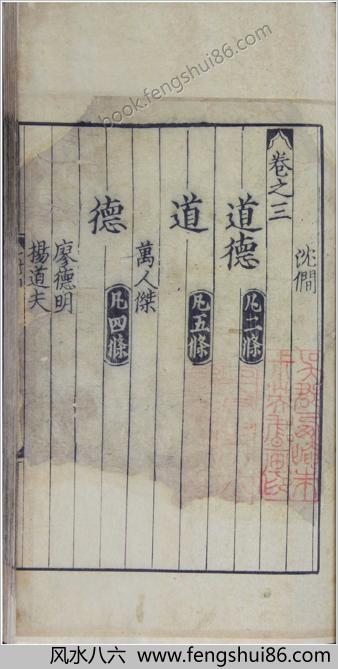 book.fengshui86.com
沈僩
卷之三
道德 凡二條
道 凡五條
萬人傑
德 凡四條
廖德明
楊道夫
风水八六 www.fengshui86.com